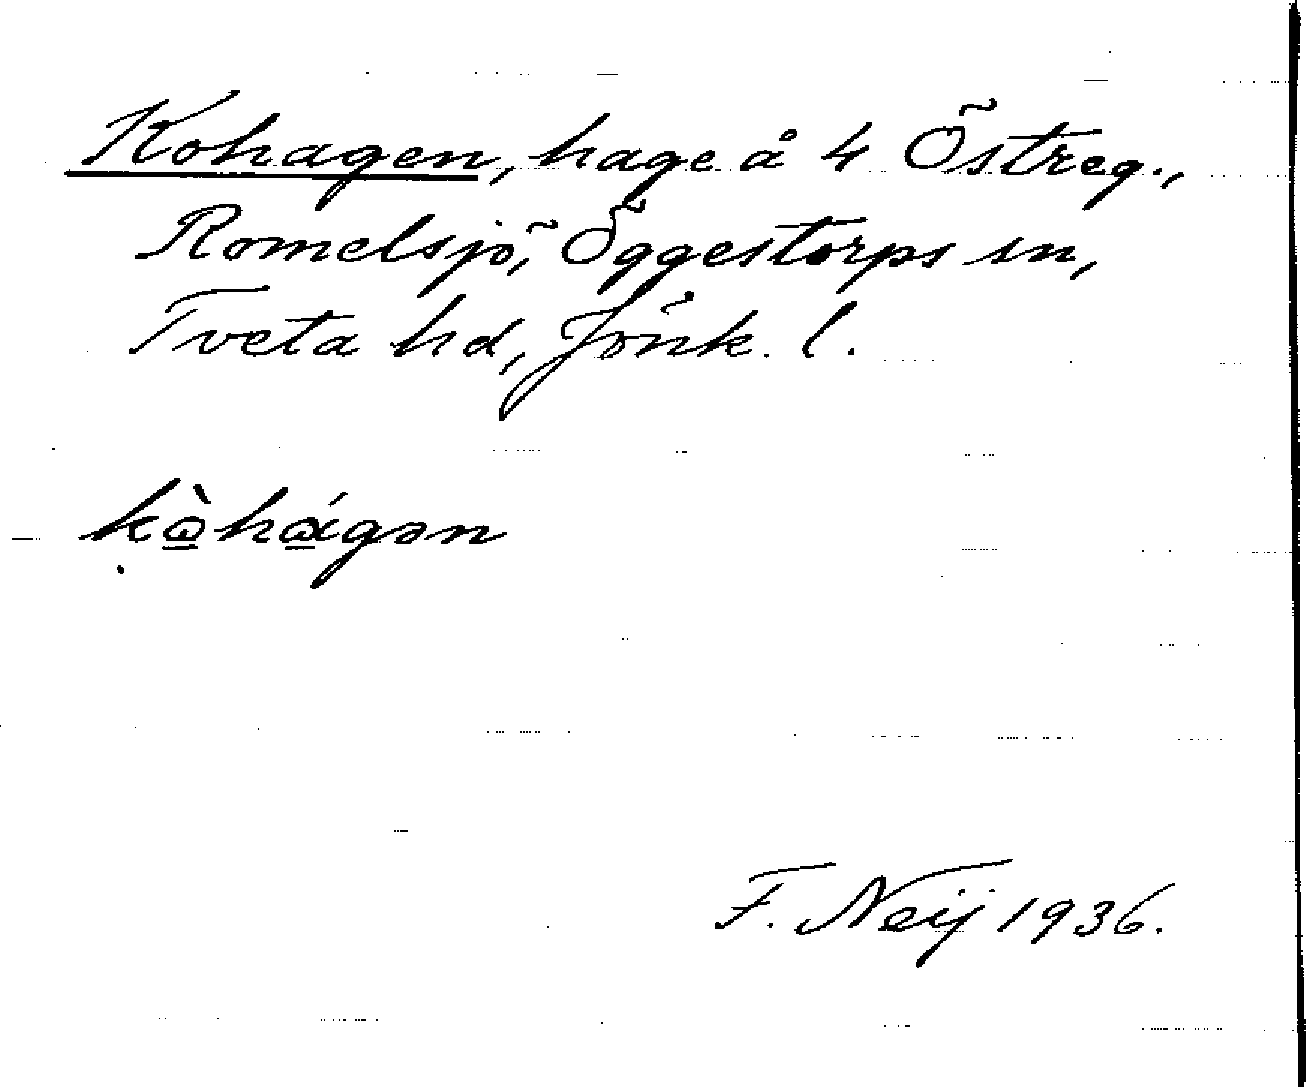 Kohagen, hage å 4 Östreg.,
Romelsjö, Öggestorps sn,
Tveta hd, Jönk. l.
kò̱hά̱gən
F. Neij 1936.